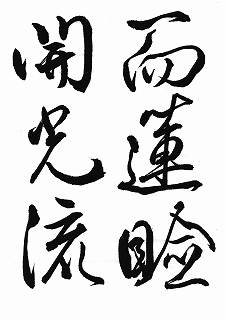 而蓮瞼
開光流